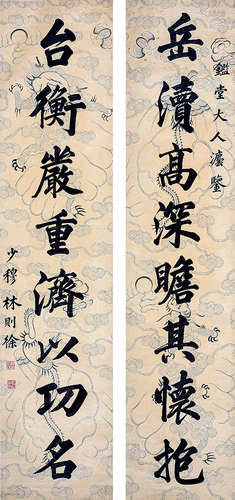 鑑堂大人濡鑒
岳瀆高深瞻其懷抱
台衡嚴重濟以功名
少穆林則徐